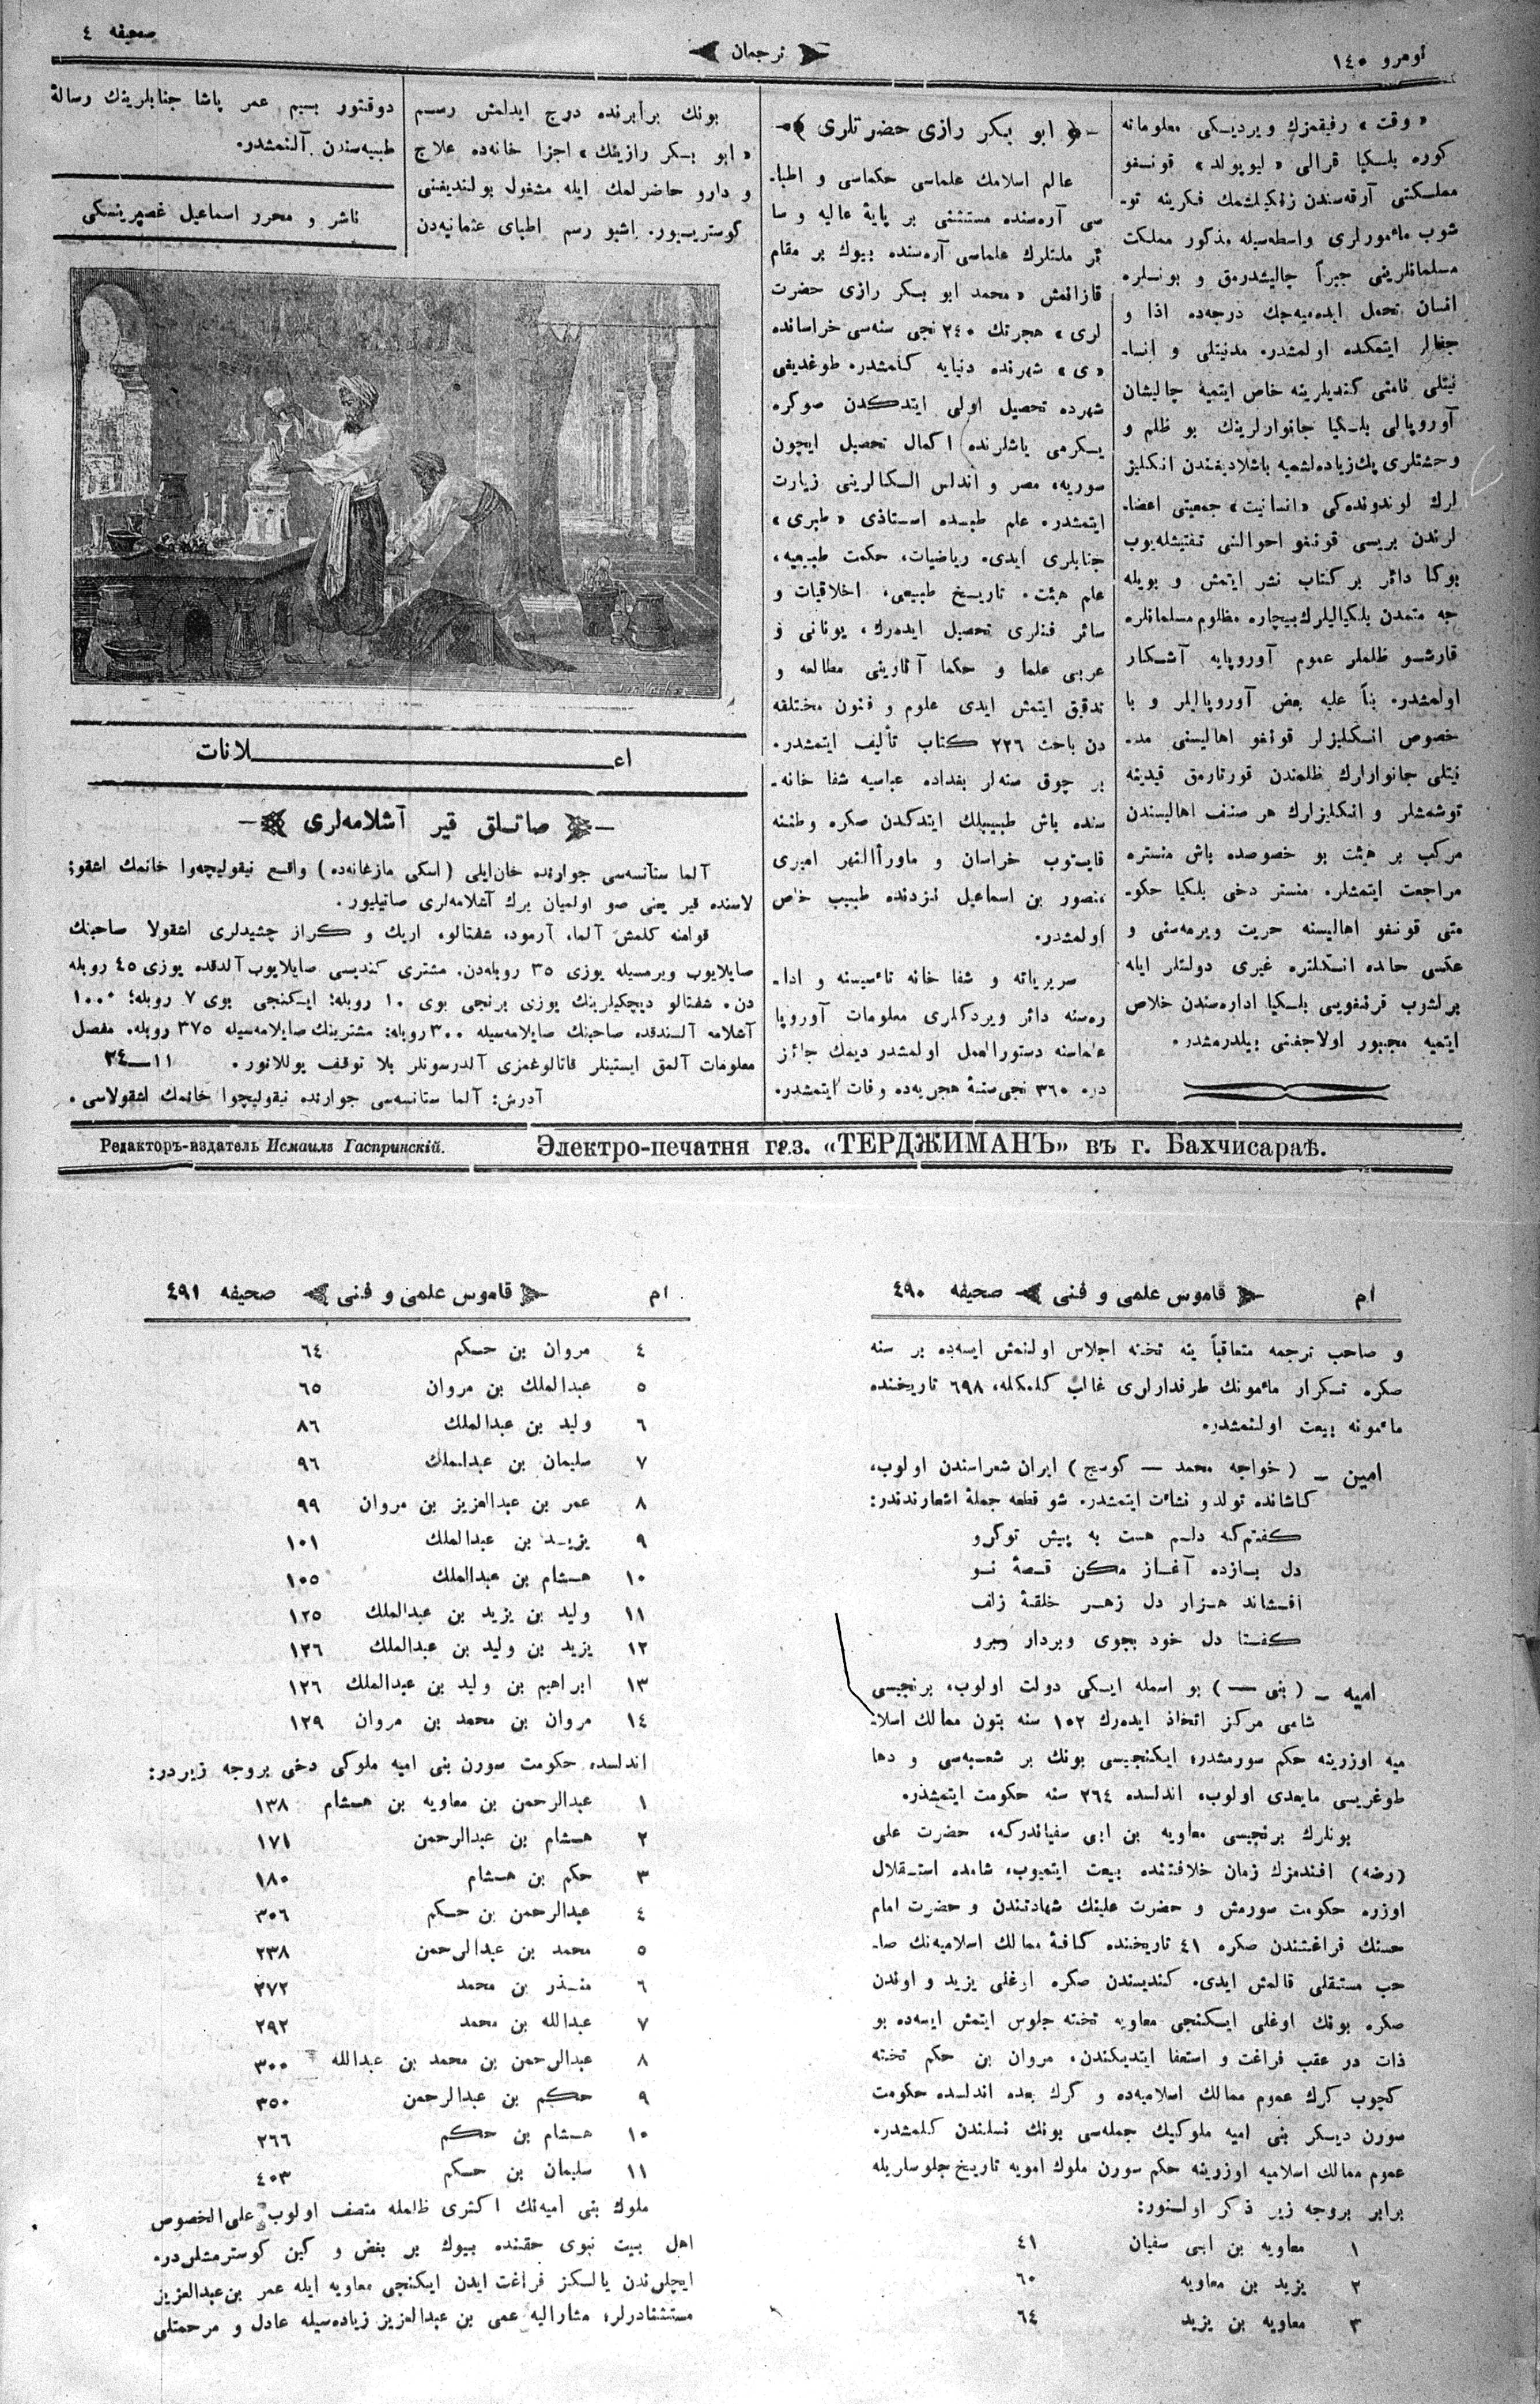 نومرو ١٤٠
ترجمان
صحيفه ٤
« وقت » رفيقمزك ويرديكى معلوماته
كوره بلكيا قرالى « ليوپولد » قونغو
مملكتى آرقه‌سندن زنكيلشمك فكرينه تو-
شوب مأمورلرى واسطه‌سيله مذكور مملكت
مسلمانلرينى جبراً چاليشدرمق و بونلره
انسان تحمل ايده‌ميه‌جك درجه‌ده اذا و
جفالر ايتمكده اولمشدر. مدنيتلى و انسا-
نيتلى نامنى كنديلرينه خاص ايتميه چاليشان
آوروپالى بلكيا جانوارلرينك بو ظلم و
وحشتلرى پك زياده‌لشميه باشلاديغندن انكليز
لرك لوندونده‌كى «انسانيت» جمعيتى اعضا-
لرندن بريسى قونغو احوالنى تفتيشله‌يوب
بوكا دائر بر كتاب نشر ايتمش و بويله
جه متمدن بلكياليلرك بيچاره مظلوم مسلمانلره
قارشو ظلملر عموم آوروپايه آشكار
اولمشدر. بناً عليه بعض آوروپاليلر و با
خصوص انكليزلر قونغو اهاليسنى مد-
نيتلى جانوارلرك ظلمندن قورتارمق قيدينه
توشمشلر و انكليزلرك هر صنف اهاليسندن
مركب بر هيئت بو خصوصده باش منستره
مراجعت ايتمشلر. منستر دخى بلكيا حكو-
متى قونغو اهاليسنه حريت ويرمه‌سنى و
عكسى حالده انكلتره غيرى دولتلر ايله
برلشوب قونغويى بلكيا اداره‌سندن خلاص
ايتميه مجبور اولاجغنى بيلدرمشدر.
ابو بكر رازى حضرتلرى
عالم اسلامك علماسى حكماسى و اطبا-
سى آره‌سنده مستثنى بر پايۀ عاليه و سا
ئر ملتلرك علماسى آره‌سنده بيوك بر مقام
قازانمش « محمد ابو بكر رازى حضرت
لرى » هجرتك ٢٤٠ نجى سنه‌سى خراسانده
«رى» شهرنده دنيايه كلمشدر. طوغديغى
شهرده تحصيل اولى ايتدكدن صوكره
يكرمى ياشلرنده اكمال تحصيل ايچون
سوريه، مصر و اندلس الكالرينى زيارت
ايتمشدر. علم طبده استاذى « طبرى »
جنابلرى ايدى. رياضيات، حكمت طبيعيه،
علم هيئت، تاريخ طبيعى، اخلاقيات و
سائر فنلرى تحصيل ايده‌رك، يونانى و
عربى علما و حكما آثارينى مطالعه و
تدقيق ايتمش ايدى علوم و فنون مختلفه
دن باحث ٢٢٦ كتاب تأليف ايتمشدر.
بر چوق سنه‌لر بغداده عباسيه شفا خانه-
سنده باش طبيبلك ايتدكدن صكره وطننه
قايتوب خراسان و ماورأالنهر اميرى
منصور بن اسماعيل نزدنده طبيب خاص
اولمشدر.
سريرياته و شفا خانه تأسيسنه و ادا-
ره‌سنه دائر ويردكلرى معلومات آوروپا
علماسنه دستورالعمل اولمشدر ديمك جائز
در. ٣٦٠ نجى سنۀ هجريه‌ده وفات ايتمشدر.
بونك برابرنده درج ايدلمش رسم
« ابو بكر رازينك » اجزا خانه‌ده علاج
و دارو حاضرلمك ايله مشغول بولنديغنى
كوستريبور. اشبو رسم اطباى عثمانيه‌دن
دوقتور بسيم عمر پاشا جنابلرينك رسالۀ
طبيه‌سندن آلنمشدر.
ناشر و محرر اسماعيل غصپرينسكى
اعــلانات
صاتلق قير آشلامه‌لرى
آلما ستانسه‌سى جوارنده خان‌ايلى (اسكى مازغانه‌ده) واقع نيقوليچه‌وا خانمك اشقو-
لاسنده قير يعنى صو اولميان يرك آشلامه‌لرى صاتيليور.
قوامنه كلمش آلما، آرمود، شفتالو، اريك و كراز چشيدلرى اشقولا صاحبنك
صايلايوب ويرمسيله يوزى ٣٥ روبله‌دن. مشترى كنديسى صايلايوب آلدقده يوزى ٤٥ روبله
دن. شفتالو ديچكيلرينك يوزى برنجى بوى ١٠ روبله؛ ايكنجى بوى ٧ روبله؛ ١٠٠٠
آشلامه آلندقده صاحبنك صايلامه‌سيله ٣٠٠ روبله: مشترينك صايلامه‌سيله ٣٧٥ روبله. مفصل
معلومات آلمق ايستينلر قاتالوغمزى آلدرسونلر بلا توقف يوللانور. ١١—٢٤
آدرش: آلما ستانسه‌سى جوارنده نيقوليچوا خانمك اشقولاسى.
Редакторъ-издатель Исмаилъ Гаспринскій.
Электро-печатня газ. «ТЕРДЖИМАНЪ» въ г. Бахчисараѣ.
ام
قاموس علمى و فنى
صحيفه ٤٩٠
و صاحب ترجمه متعاقباً ينه تخته اجلاس اولنمش ايسه‌ده بر سنه
صكره تكرار مأمونك طرفدارلرى غالب كلمكله، ٦٩٨ تاريخنده
مأمونه بيعت اولنمشدر.
امين – ( خواجه محمد — كوسج ) ايران شعراسندن اولوب،
كاشانده تولد و نشأت ايتمشدر. شو قطعه جملۀ اشعارندندر:
كفتم كه دلم هست به پيش توكرو
دل بازده آغاز مكن قصۀ نو
افشاند هزار دل زهر حلقۀ زلف
كفتا دل خود بجوى وبردار وبرو
اميه – ( بنى — ) بو اسمله ايكى دولت اولوب، برنجيسى
شامى مركز اتخاذ ايده‌رك ١٥٢ سنه بتون ممالك اسلا-
ميه اوزرينه حكم سورمشدر؛ ايكنجيسى بونك بر شعبه‌سى و دها
طوغريسى مابعدى اولوب، اندلسده ٢٦٤ سنه حكومت ايتمشدر.
بونلرك برنجيسى معاويه بن ابى سفياندركه، حضرت على
(رضه) افندمزك زمان خلافتنده بيعت ايتميوب، شامده استقلال
اوزره حكومت سورمش و حضرت علينك شهادتندن و حضرت امام
حسنك فراغتندن صكره ٤١ تاريخنده كافۀ ممالك اسلاميه‌نك صا-
حب مستقلى قالمش ايدى. كنديسندن صكره اوغلى يزيد و اوندن
صكره بونك اوغلى ايكنجى معاويه تخته جلوس ايتمش ايسه‌ده بو
ذات در عقب فراغت و استعفا ايتديكندن، مروان بن حكم تخته
كچوب كرك عموم ممالك اسلاميه‌ده و كرك بعده اندلسده حكومت
سورن ديكر بنى اميه ملوكينك جمله‌سى بونك نسلندن كلمشدر.
عموم ممالك اسلاميه اوزرينه حكم سورن ملوك امويه تاريخ جلوسلريله
برابر بروجه زير ذكر اولنور:
١ معاويه بن ابى سفيان ٤١
٢ يزيد بن معاويه ٦٠
٣ معاويه بن يزيد ٦٤
ام
قاموس علمى و فنى
صحيفه ٤٩١
٤ مروان بن حكم ٦٤
٥ عبدالملك بن مروان ٦٥
٦ وليد بن عبدالملك ٨٦
٧ سليمان بن عبدالملك ٩٦
٨ عمر بن عبدالعزيز بن مروان ٩٩
٩ يزيد بن عبدالملك ١٠١
١٠ هشام بن عبدالملك ١٠٥
١١ وليد بن يزيد بن عبدالملك ١٢٥
١٢ يزيد بن وليد بن عبدالملك ١٢٦
١٣ ابراهيم بن وليد بن عبدالملك ١٢٦
١٤ مروان بن محمد بن مروان ١٢٩
اندلسده حكومت سورن بنى اميه ملوكى دخى بروجه زيردر:
١ عبدالرحمن بن معاويه بن هشام ١٣٨
٢ هشام بن عبدالرحمن ١٧١
٣ حكم بن هشام ١٨٠
٤ عبدالرحمن بن حكم ٣٠٦
٥ محمد بن عبدالرحمن ٢٣٨
٦ منذر بن محمد ٢٧٢
٧ عبدالله بن محمد ٢٩٢
٨ عبدالرحمن بن محمد بن عبدالله ٣٠٠
٩ حكم بن عبدالرحمن ٣٥٠
١٠ هشام بن حكم ٢٦٦
١١ سليمان بن حكم ٤٠٣
ملوك بنى اميه‌نك اكثرى ظلمله متصف اولوب على‌الخصوص
اهل بيت نبوى حقنده بيوك بر بغض و كين كوسترمشلردر.
ايچلرندن يالكز فراغت ايدن ايكنجى معاويه ايله عمر بن عبدالعزيز
مستثنادرلر؛ مشاراليه عمر بن عبدالعزيز زياده‌سيله عادل و مرحمتلى